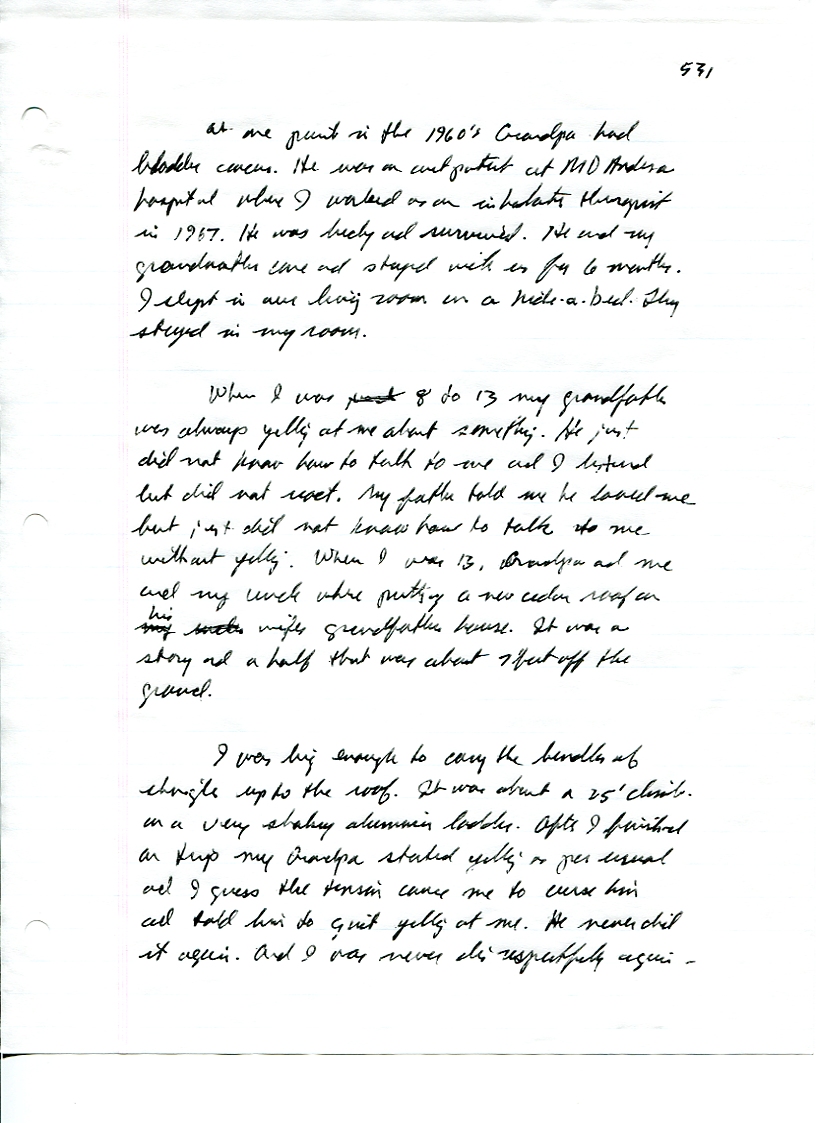 531
at one point in the 1960's Grandpa had
bladder cancer. He was an outpatient at MD Anderson
hospital where I worked as an inhalation therapist
in 1967. He was lucky and survived. He and my
grandmother came and stayed with us for 6 months.
I slept in our living room on a hide-a-bed. They
stayed in my room.
When I was 8 to 13 my grandfather
was always yelling at me about something. He just
did not know how to talk to me and I listened
but did not react. My father told me he loved me
but just did not know how to talk to me
without yelling. When I was 13, Grandpa and me
and my uncle where putting a new cedar roof on
his wifes grandfathers house. It was a
story and a half that was about off the
ground.
I was big enough to carry the bundles of
shingle up to the roof. It was about a 25' climb
on a very shakey aluminum ladder. After I finished
on trip my Grandpa started yelling as per usual
and I guess the tension cause me to curse him
and told him to quit yelling at me. He never did
it again. And I was never disrespectfully again -